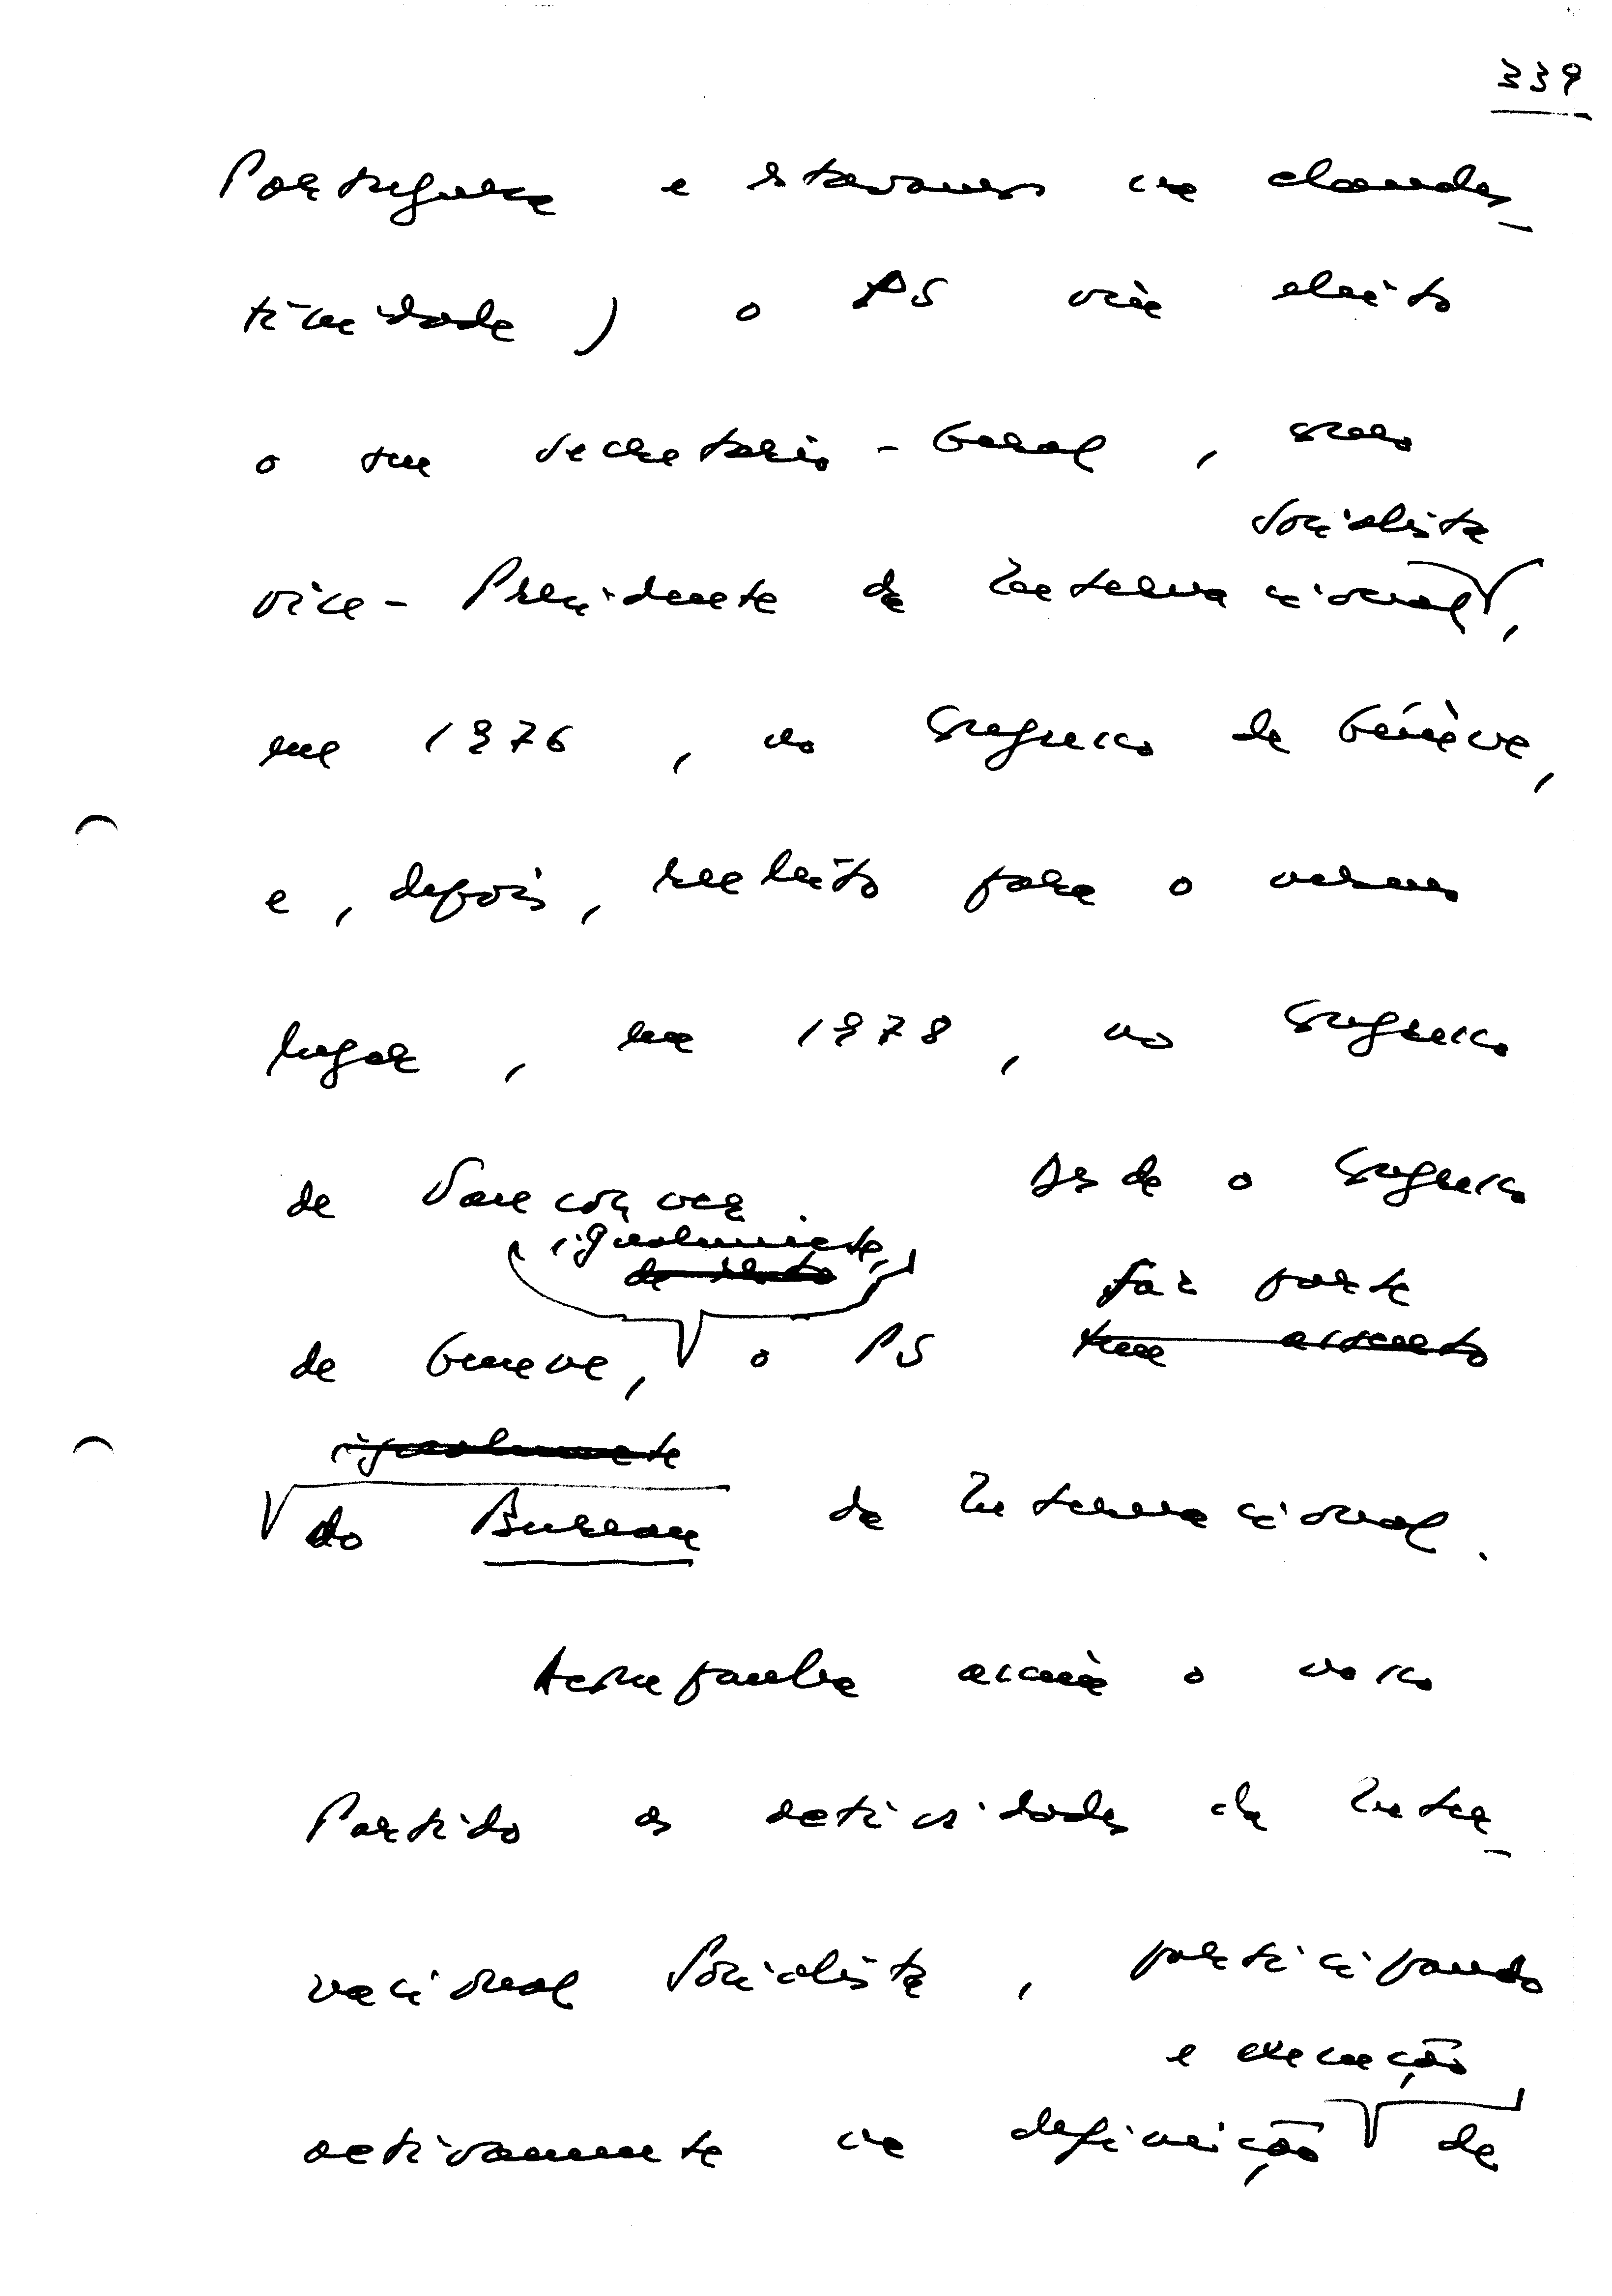 339
Portuguesa e estavamos na clandes-
tinidade) o PS viu eleito
o seu secretário-Geral, como
Socialista
vice-Presidente da Internacional,
em 1976, no Congresso de Génève,
e, depois, reeleito para o mesmo
lugar, em 1978, no Congresso
de Vancouver. Desde o Congresso
igualmente,
faz parte
de Geneve, o PS tem assento
igualmente
do Bureau da Internacional.
Acompanha assim o nosso
Partido as actividades da Inter-
nacional Socialista, participando
e execução
activamente na definição da